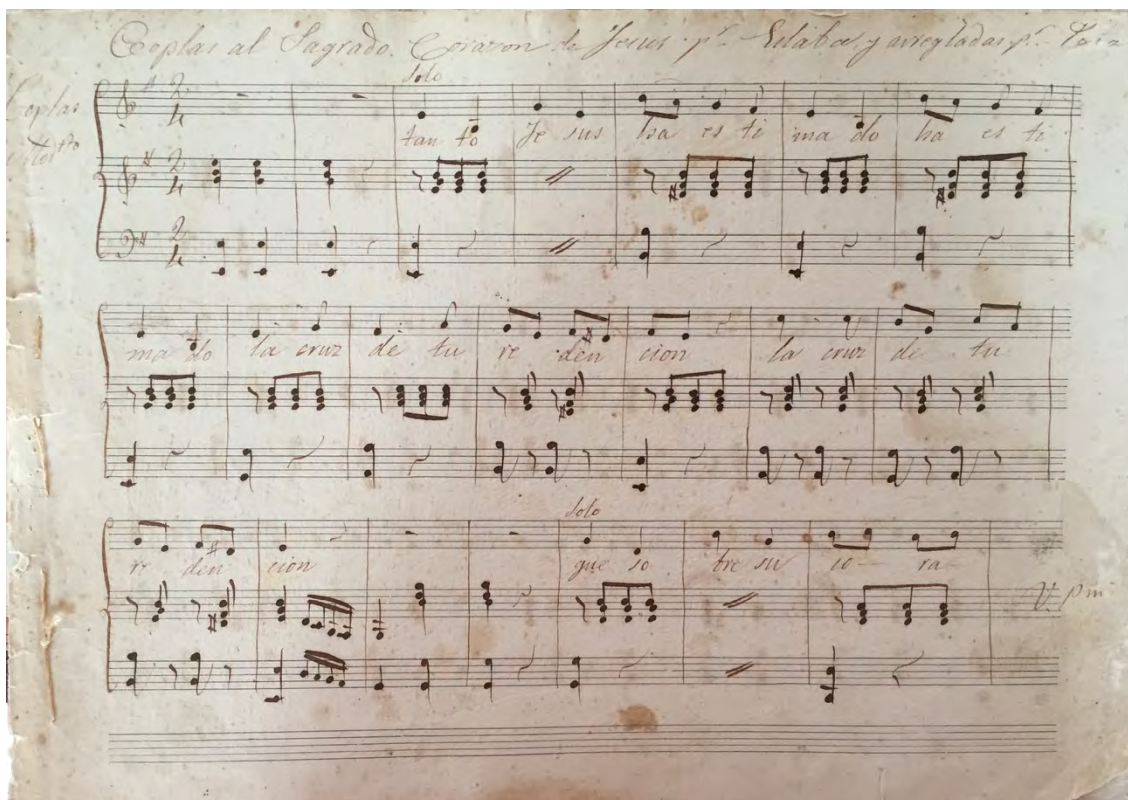 Coplas al Sagrado Corazon de Jesus pr. Eslaba y arregladas pr.
Coplas
Solo
tan to Je sus ha es ti ma do ha es ti
ma do la cruz de tu re den cion la cruz de tu
re den cion
Solo
que so bre su co- ra-